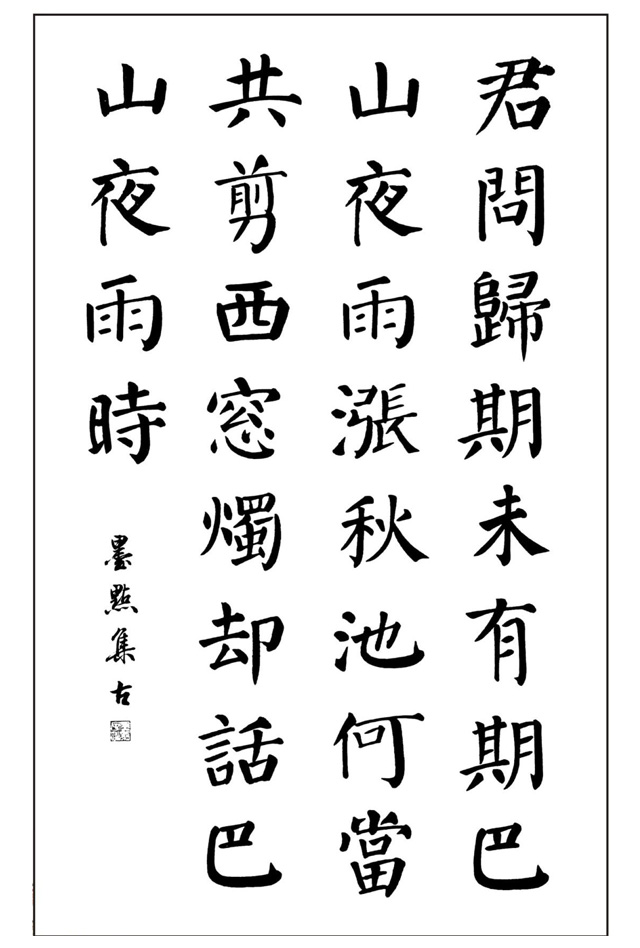 君問歸期未有期巴
山夜雨漲秋池何當
共剪西窓燭却話巴
山夜雨時
墨點集古